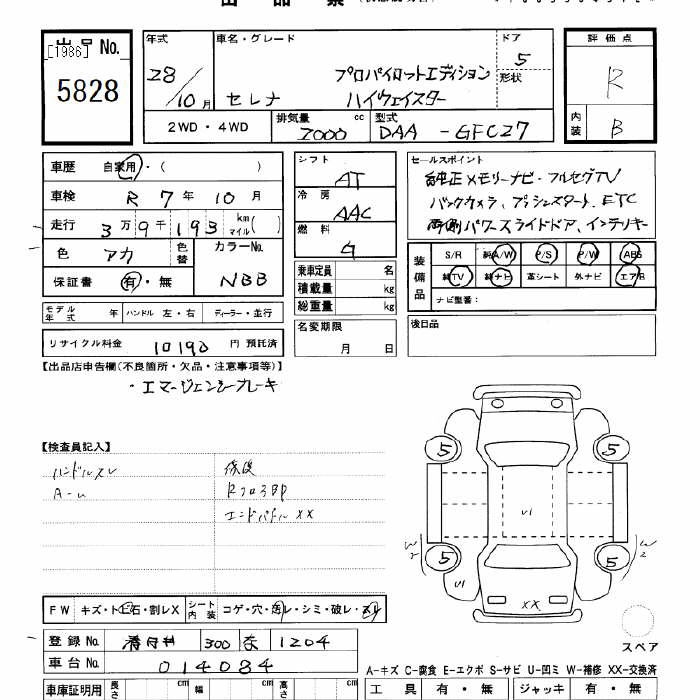 出品票
出品 No.
[1986]
5828
年式
28/10月
車名・グレード
セレナ
プロパイロットエディション
ハイウェイスター
ドア
5
形状
評価点
R
内装
B
2WD・4WD
排気量 cc
2000
型式
DAA - GFC27
車歴 自家用・( )
車検 R 7年 10月
走行 3万9千193 km マイル( )
色 アカ
色替
カラーNo.
NBB
保証書 有・無
モデル年式 年 ハンドル 左・右 ディーラー・並行
リサイクル料金 10190 円 預託済
シフト
AT
冷房
AAC
燃料
乗車定員 名
積載量 kg
総重量 kg
名変期限
月 日
セールスポイント
純正メモリーナビ・フルセグTV
バックカメラ、プッシュスタート、ETC
両側パワースライドドア、インテリキー
装備品
S/R 純A/W P/S P/W ABS
純TV 純ナビ 革シート 外ナビ エアB
ナビ型番:
後日品
【出品店申告欄(不良箇所・欠品・注意事項等)】
・エマージェンシーブレーキ
【検査員記入】
ハンドルスレ
修復
エンドパネル XX
5 5
U1
W2 5 5 W2
U1
XX
スペア
FW キズ・トビ石・割レX シート内装 コゲ・穴・汚レ・シミ・破レ・スレ
登録 No. 300 1204
車台 No. 014084
車庫証明用 長さ cm 幅 cm 高さ cm
A-キズ C-腐食 E-エクボ S-サビ U-凹ミ W-補修 XX-交換済
工具 有・無 ジャッキ 有・無